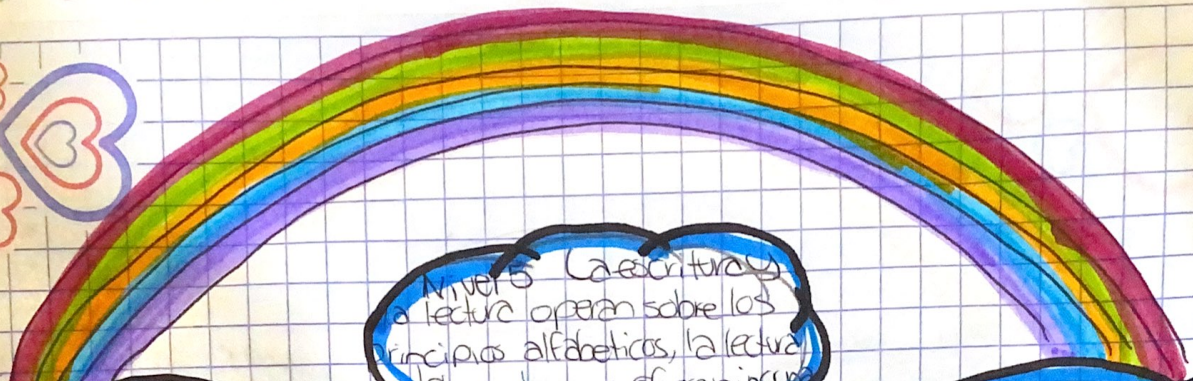 Nivel 5 La escritura y
la lectura operan sobre los
principios alfabeticos, la lectura